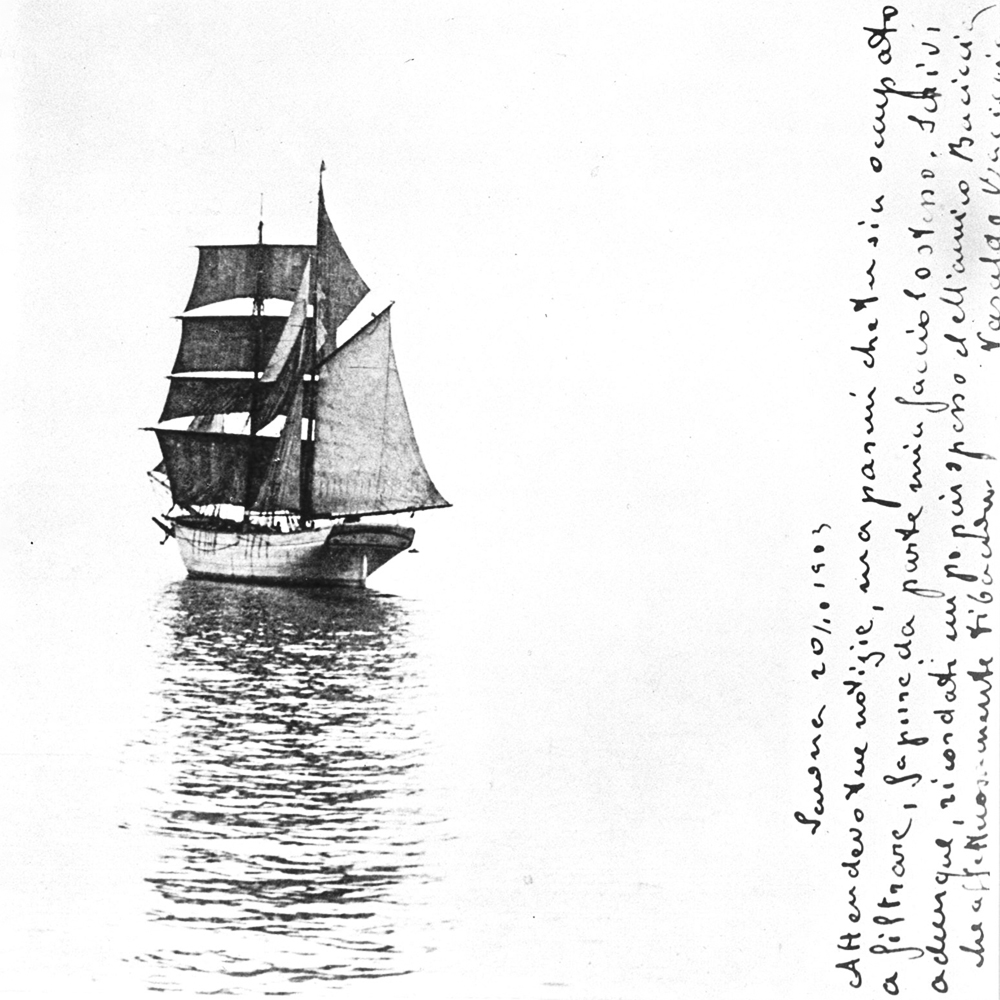 Savona 20/10 1903
Attendevo tue notizie, ma parmi che tu sia occupato
a filtrare, sapure da parte mia faccio lo stesso. Scrivi
adunque, ricordati un po' più spesso dell'amico Baciccin
che affettuosamente